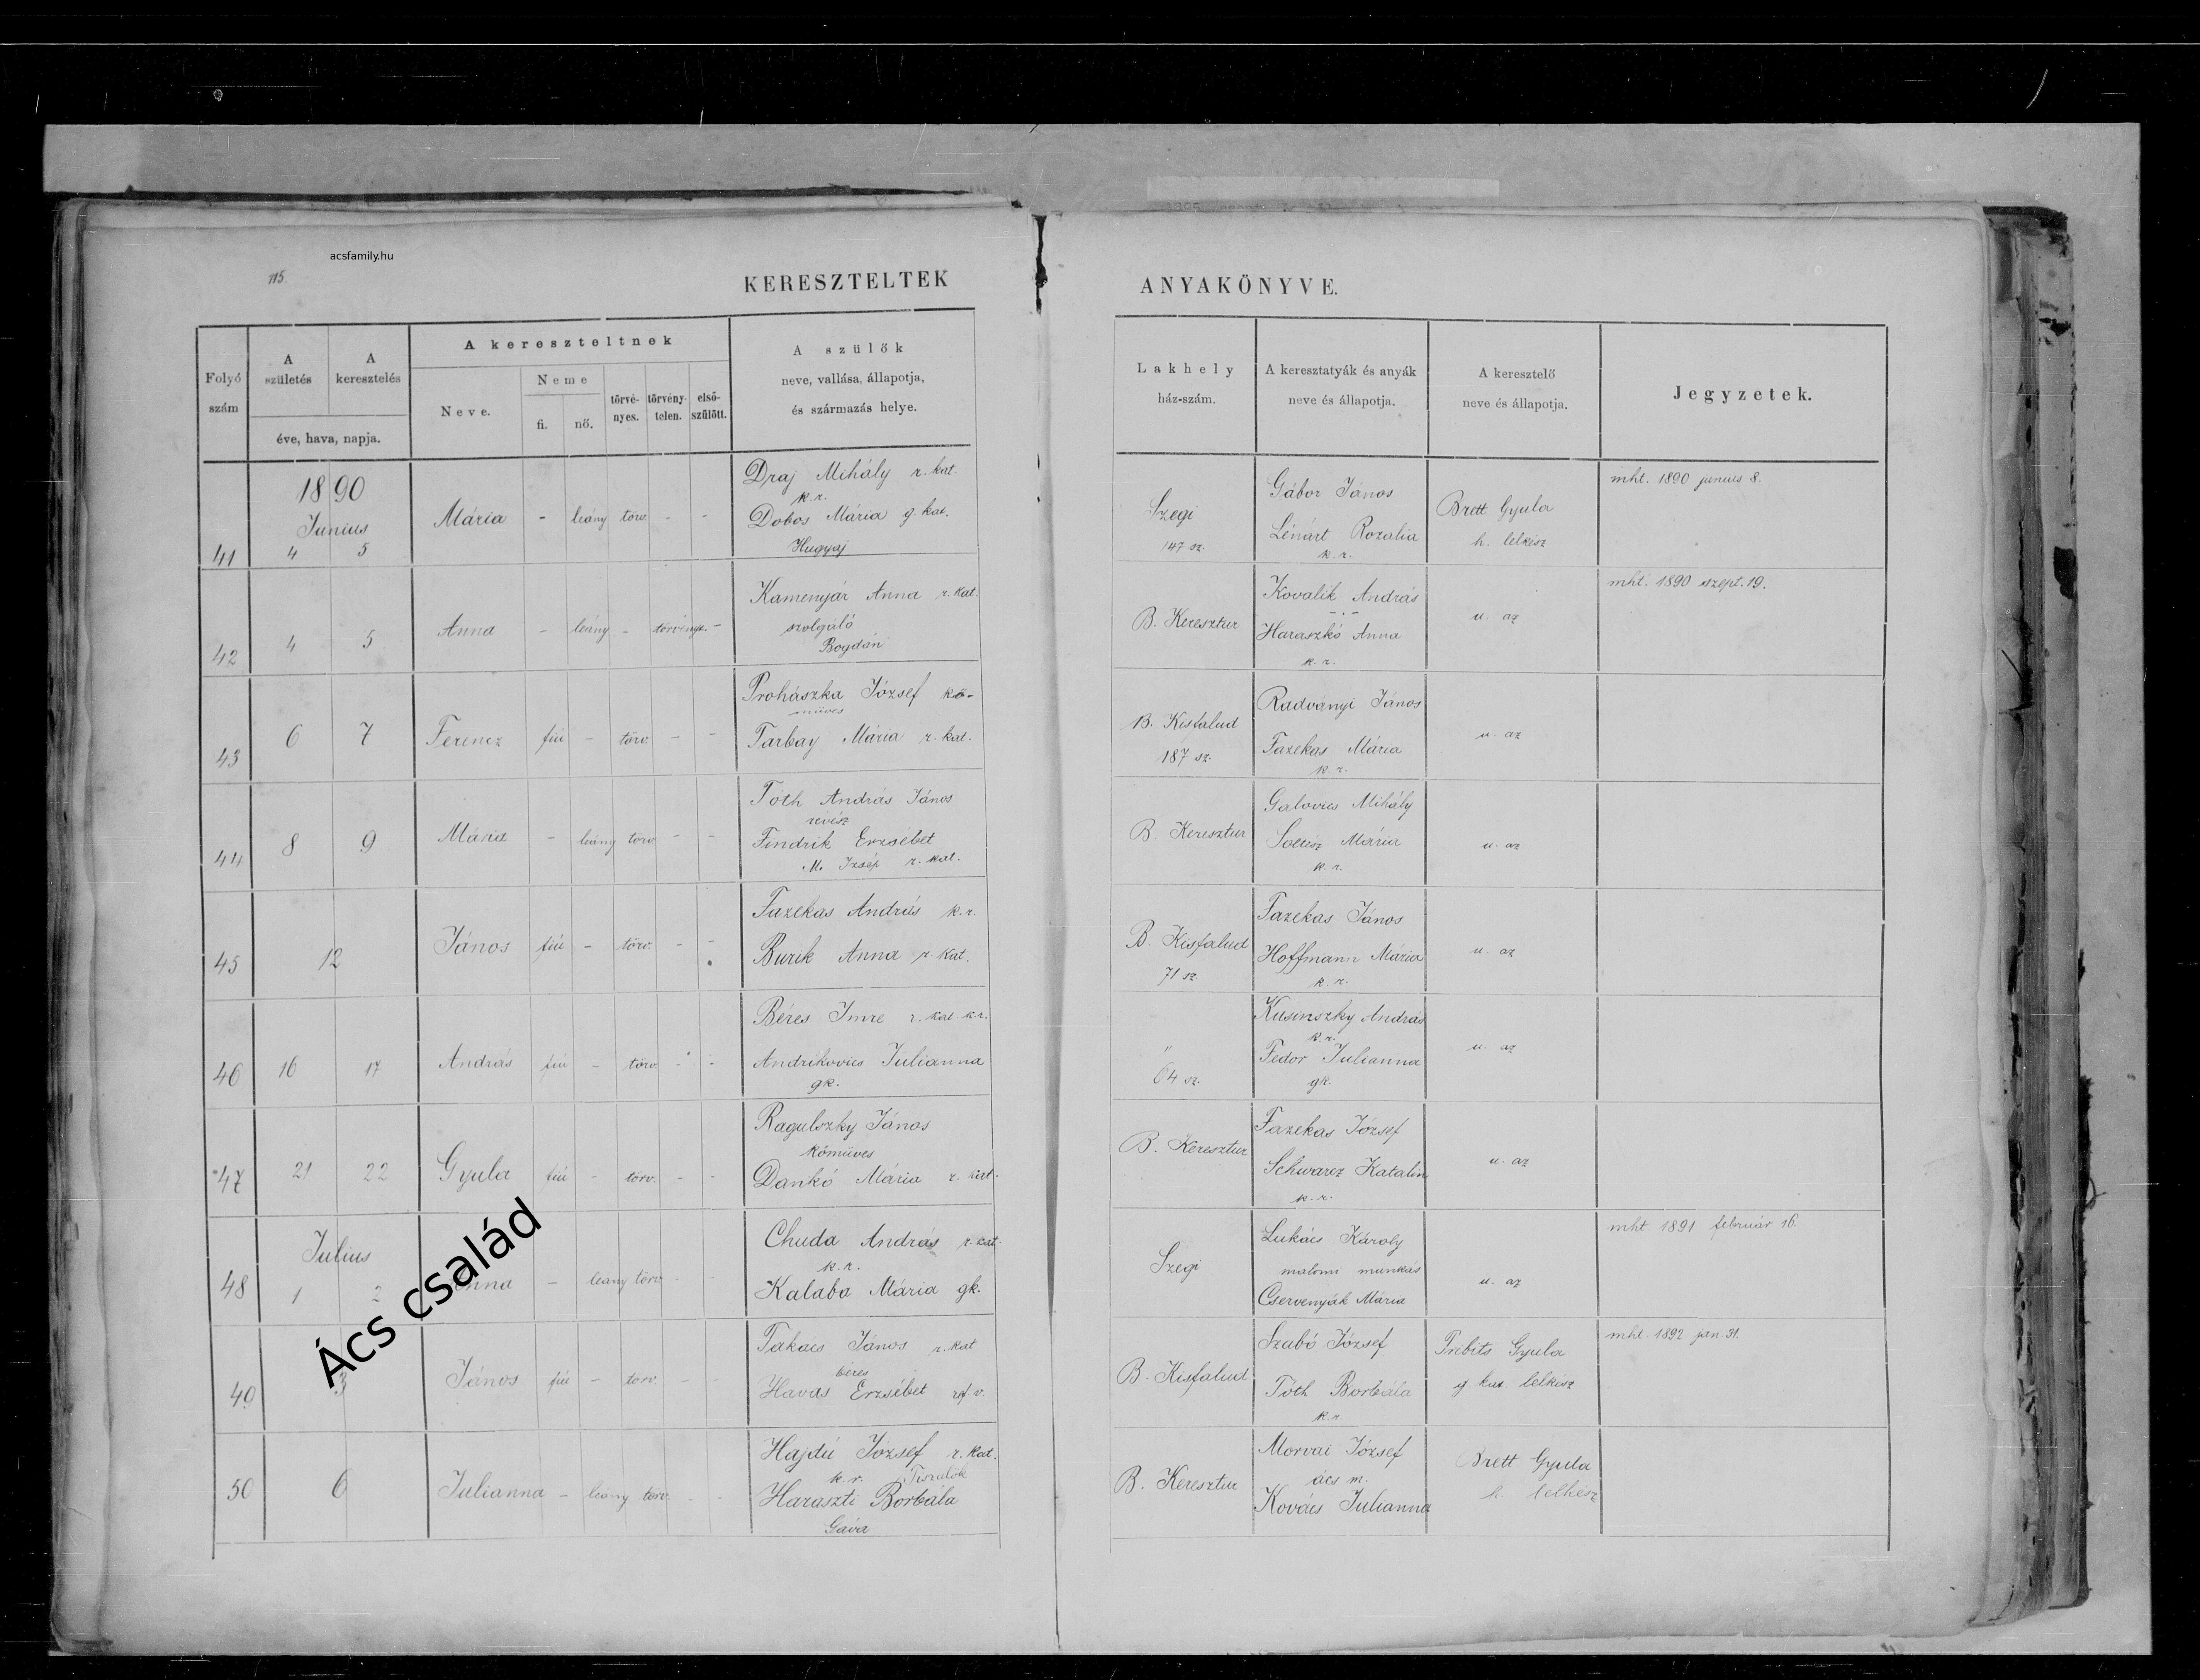 acsfamily.hu
115.
KERESZTELTEK ANYAKÖNYVE.
Folyó szám
A születés
A keresztelés
éve, hava, napja.
A kereszteltnek
Neve.
Neme
fi.
nő.
törvényes.
törvénytelen.
elsőszülött.
A szülők
neve, vallása, állapotja,
és származás helye.
Lakhely
ház-szám.
A keresztatyák és anyák
neve és állapotja.
A keresztelő
neve és állapotja.
Jegyzetek.
1890
Junius
41 4 5 Mária - leány törv - -
Draj Mihály r. kat.
k. r.
Dobos Mária g. kat.
Hugyaj
Szegi
147 sz.
Gábor János
Lénárt Rozalia
k. r.
Brett Gyula
h. lelkész
mht. 1890 junius 8.
42 4 5 Anna - leány - törvényt. -
Kamenyár Anna r. kat.
szolgáló
Bogdán
B. Keresztur
Kovalik András
- . -
Haraszkó Anna
k. r.
u. az
mht. 1890 szept. 19.
43 6 7 Ferencz fiú - törv. - -
Prohászka József kő-
műves
Tarbay Mária r. kat.
B. Kisfalud
187 sz.
Radványi János
Fazekas Mária
k. r.
u. az
44 8 9 Mária - leány törv - -
Tóth András János
révész
Findrik Erzsébet
M. Izsép r. kat.
B. Keresztur
Galovics Mihály
Soltisz Mária
k. r.
u. az
45 12 János fiú - törv. - -
Fazekas András k. r.
Burik Anna r. kat.
B. Kisfalud
71 sz.
Fazekas János
Hoffmann Mária
k. r.
u. az
46 16 17 András fiú - törv - -
Béres Imre r. kat. k. r.
Andrikovics Julianna
gk.
"
64 sz.
Kusinszky András
k. r.
Fedor Julianna
gk.
u. az
47 21 22 Gyula fiú - törv. - -
Ragulszky János
kőműves
Dankó Mária r. kat.
B. Keresztur
Fazekas József
Schwarcz Katalin
k. r.
u. az
Julius
48 1 2 Anna - leány törv - -
Chuda András r. kat.
k. r.
Kalaba Mária gk.
Szegi
Lukács Károly
malomi munkás
Cservenyák Mária
u. az
mht. 1891 február 16.
49 3 János fiú - törv. - -
Takács János r. kat
béres
Havas Erzsébet ref. v.
B. Kisfalud
Szabó József
Tóth Borbála
k. r.
Pribits Gyula
g. kat. lelkész
mht. 1892 jan. 31.
50 6 Julianna - leány törv. - -
Hajdú József r. kat.
k. r. Tiszalök
Haraszti Borbála
Gáva
B. Keresztur
Morvai József
ács m.
Kovács Julianna
Brett Gyula
h. lelkész
Ács család